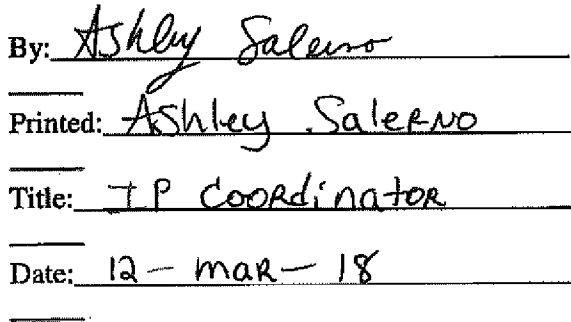 By: Ashley Salerno
Printed: Ashley Salerno
Title: IP Coordinator
Date: 12 - MAR - 18